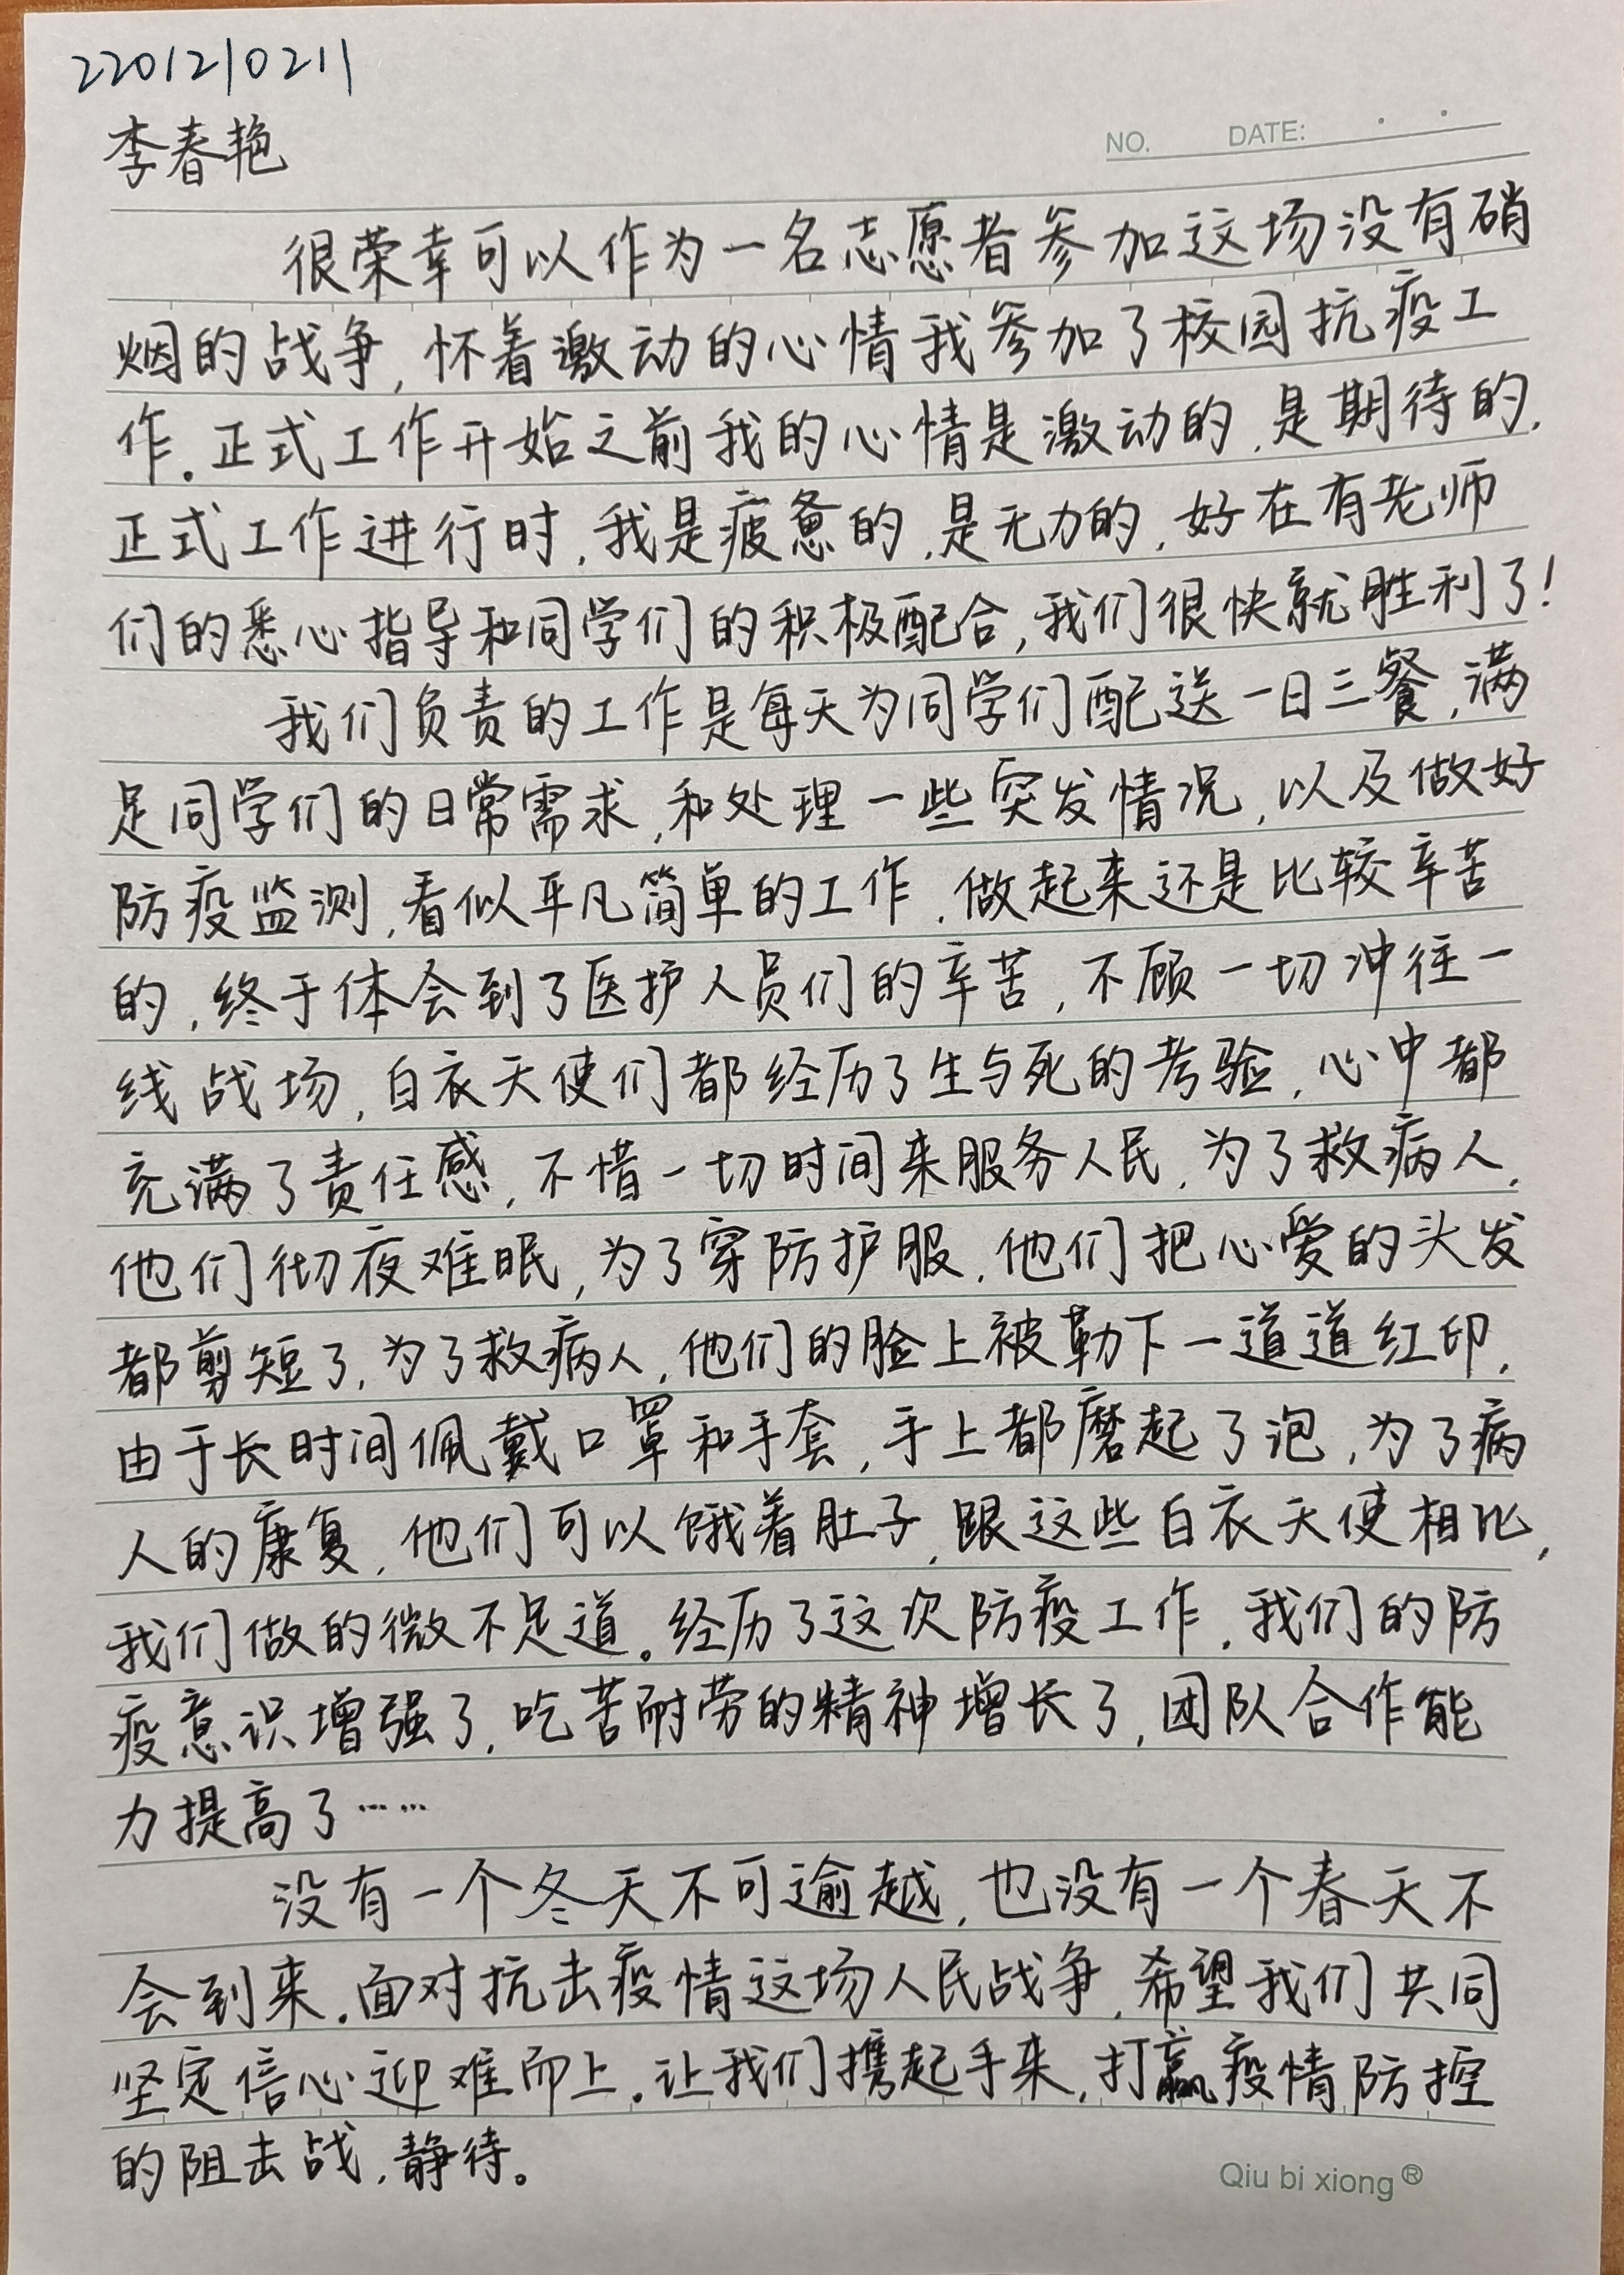 2201210211
李春艳
NO. DATE:
很荣幸可以作为一名志愿者参加这场没有硝
烟的战争,怀着激动的心情我参加了校园抗疫工
作。正式工作开始之前我的心情是激动的,是期待的,
正式工作进行时,我是疲惫的,是无力的,好在有老师
们的悉心指导和同学们的积极配合,我们很快就胜利了!
我们负责的工作是每天为同学们配送一日三餐,满
足同学们的日常需求,和处理一些突发情况,以及做好
防疫监测,看似平凡简单的工作,做起来还是比较辛苦
的,终于体会到了医护人员们的辛苦,不顾一切冲往一
线战场,白衣天使们都经历了生与死的考验,心中都
充满了责任感,不惜一切时间来服务人民,为了救病人,
他们彻夜难眠,为了穿防护服,他们把心爱的头发
都剪短了,为了救病人,他们的脸上被勒下一道道红印,
由于长时间佩戴口罩和手套,手上都磨起了泡,为了病
人的康复,他们可以饿着肚子,跟这些白衣天使相比,
我们做的微不足道。经历了这次防疫工作,我们的防
疫意识增强了,吃苦耐劳的精神增长了,团队合作能
力提高了……
没有一个冬天不可逾越,也没有一个春天不
会到来。面对抗击疫情这场人民战争,希望我们共同
坚定信心迎难而上。让我们携起手来,打赢疫情防控
的阻击战,静待。
Qiu bi xiong®